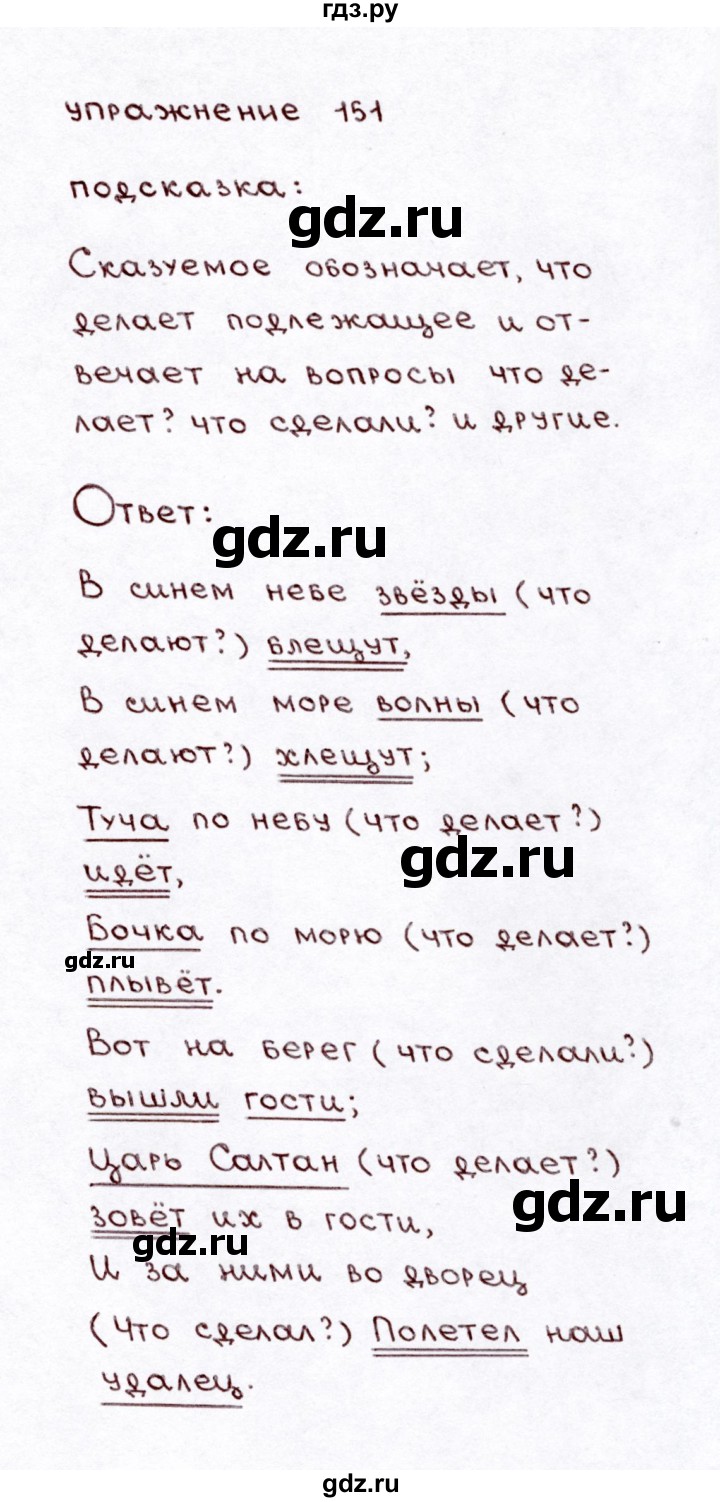 гдз.ру
упражнение 151
подсказка:
gdz.ru
Сказуемое обозначает, что
делает подлежащее и от-
вечает на вопросы что де-
лает? что сделали? и другие.
Ответ:
gdz.ru
В синем небе звёзды (что
делают?) блещут,
В синем море волны (что
делают?) хлещут;
Туча по небу (что делает?)
gdz.ru
идёт,
Бочка по морю (что делает?)
gdz.ru
плывёт.
Вот на берег (что сделали?)
вышли гости;
Царь Салтан (что делает?)
gdz.ru
зовёт их в гости,
gdz.ru
И за ними во дворец
(Что сделал?) Полетел наш
удалец.
gdz.ru